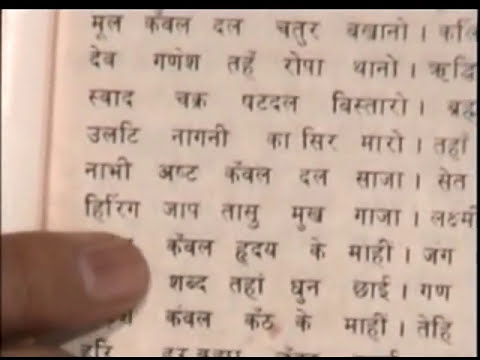 मूल कँवल दल चतुर बखानो । कलि
देव गणेश तहँ रोपा थानो । ऋद्धि
स्वाद चक्र षटदल बिस्तारो । ब्रह्म
उलटि नागनी का सिर मारो । तहां
नाभी अष्ट कँवल दल साजा । सेत
हिरिंग जाप तासु मुख गाजा । लक्ष्मी
कँवल हृदय के माहीं । जंग
शब्द तहां धुन छाई । गण
कंवल कँठ के माहीं । तेहि
हरि हर ब्रह्मा